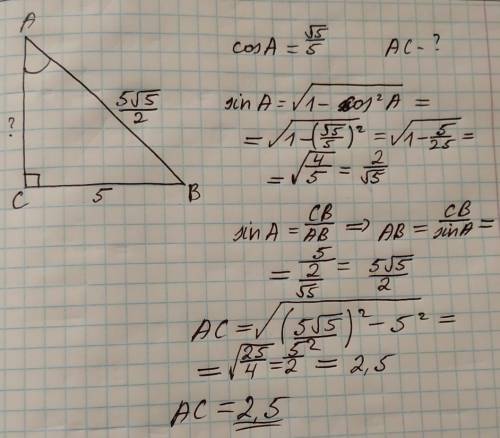 A
?
C
5
B
5√5/2
cosA = √5/5 AC - ?
sinA = √(1 - cos²A) =
= √(1 - (√5/5)²) = √(1 - 5/25) =
= √(4/5) = 2/√5
sinA = CB/AB ⇒ AB = CB/sinA =
= 5/(2/√5) = 5√5/2
AC = √((5√5/2)² - 5²) =
= √(25/4) = 5/2 = 2,5
AC = 2,5